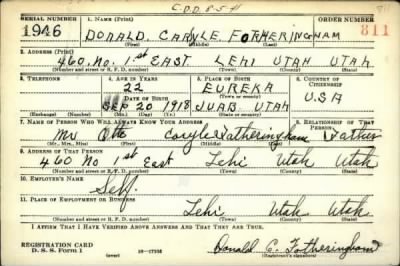 C.D.D. 8-5-41
SERIAL NUMBER
1. NAME (Print)
ORDER NUMBER
1946
DONALD. CARYLE. FOTHERINGHAM
811
(First) (Middle) (Last)
2. ADDRESS (Print)
460. No. 1st EAST LEHI UTAH UTAH
(Number and street or R. F. D. number) (Town) (County) (State)
3. TELEPHONE
4. AGE IN YEARS
5. PLACE OF BIRTH
6. COUNTRY OF CITIZENSHIP
22
EUREKA
DATE OF BIRTH
(Town or county)
U.S.A
SEP 20 1918
JUAB. UTAH
(Exchange) (Number)
(Mo.) (Day) (Yr.)
(State or country)
7. NAME OF PERSON WHO WILL ALWAYS KNOW YOUR ADDRESS
8. RELATIONSHIP OF THAT PERSON
Mr Otto Caryle Fotheringham Father
(Mr., Mrs., Miss) (First) (Middle) (Last)
9. ADDRESS OF THAT PERSON
460 No 1st East Lehi Utah Utah
(Number and street or R. F. D. number) (Town) (County) (State)
10. EMPLOYER'S NAME
Self.
11. PLACE OF EMPLOYMENT OR BUSINESS
Lehi Utah Utah
(Number and street or R. F. D. number) (Town) (County) (State)
I AFFIRM THAT I HAVE VERIFIED ABOVE ANSWERS AND THAT THEY ARE TRUE.
REGISTRATION CARD
D. S. S. Form 1
16—17105
Donald C. Fotheringham
(Registrant's signature)